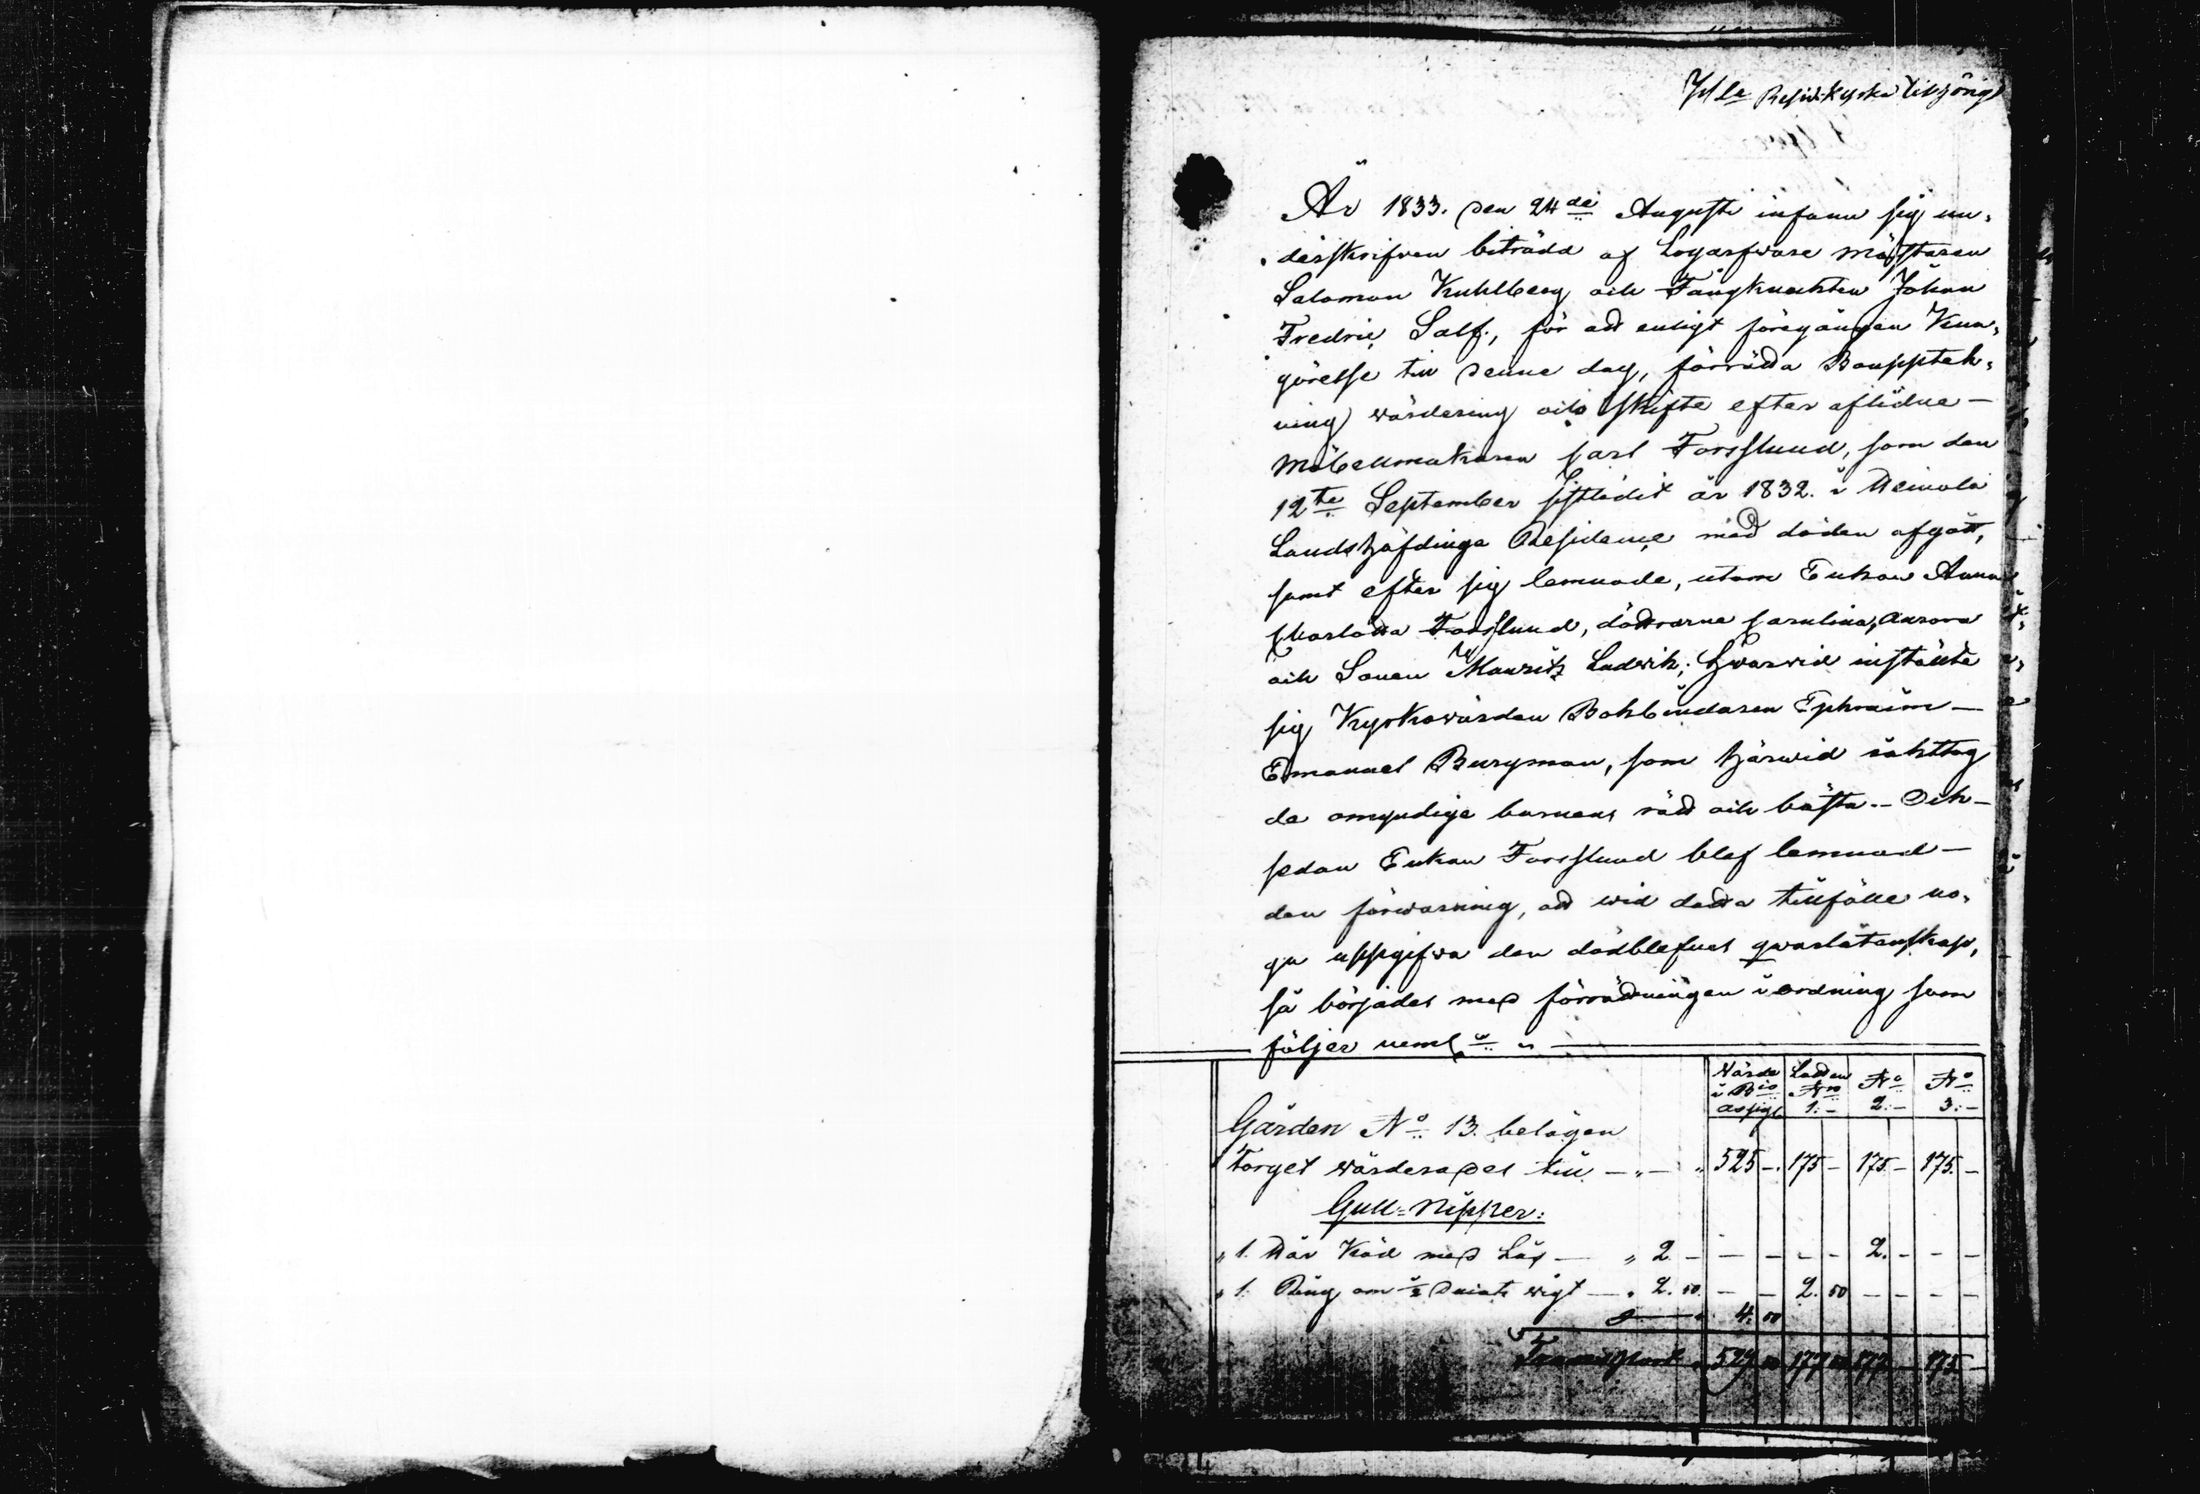 År 1833. den 24de Augusti infann sig un„
derskrifven biträdd af Logarfware Mästaren
Salomon Kuhlberg och Fångknekten Johan
Fredric Salf., för att enligt föregången Kun„
görelse till denne dag, förrätta Boupptek„
ning wärdering och skifte efter aflidne —
Möbelmakaren Carl Forsslund, som den
12te September sistledit år 1832. i Heinola
Landshöfdinge Residence med döden afgått,
samt efter sig lemnade, utom Enkan Anna
Charlotta Forsslund, döttrarne Carulina, Aurora
och Sonen Mauritz Ludwik; hwarvid inställte
sig Kyrkowärden Bokbindaren Ephraim —
Emanuel Bergman, som härwid iakttog
de omyndige barnens rätt och bästa. – Och –
sedan Enkan Forsslund blef lemnad —
den förwarning, att wid detta tillfälle no„
ga uppgifwa den dödblefnes qwarlåtenskap,
så börjades med förrättningen i ordning som
följer neml:n „
Wärde Lotten No No
i Bco No
Assign 1:– 2:– 3:–
Gården No 13. belägen
Torget wärderades till — „ — „ 525 –. 175 – 175 – 175. –
Gull=Nipper:
„ 1. Hår Käd med Lås — „ 2 – – – – – 2. – – –
„ 1. Ring om ½ Ducats wigt — „ 2. 50. – – 2. 50 – – – –
4: 50
Transport „ 529 50 177 50 177 – 175 –